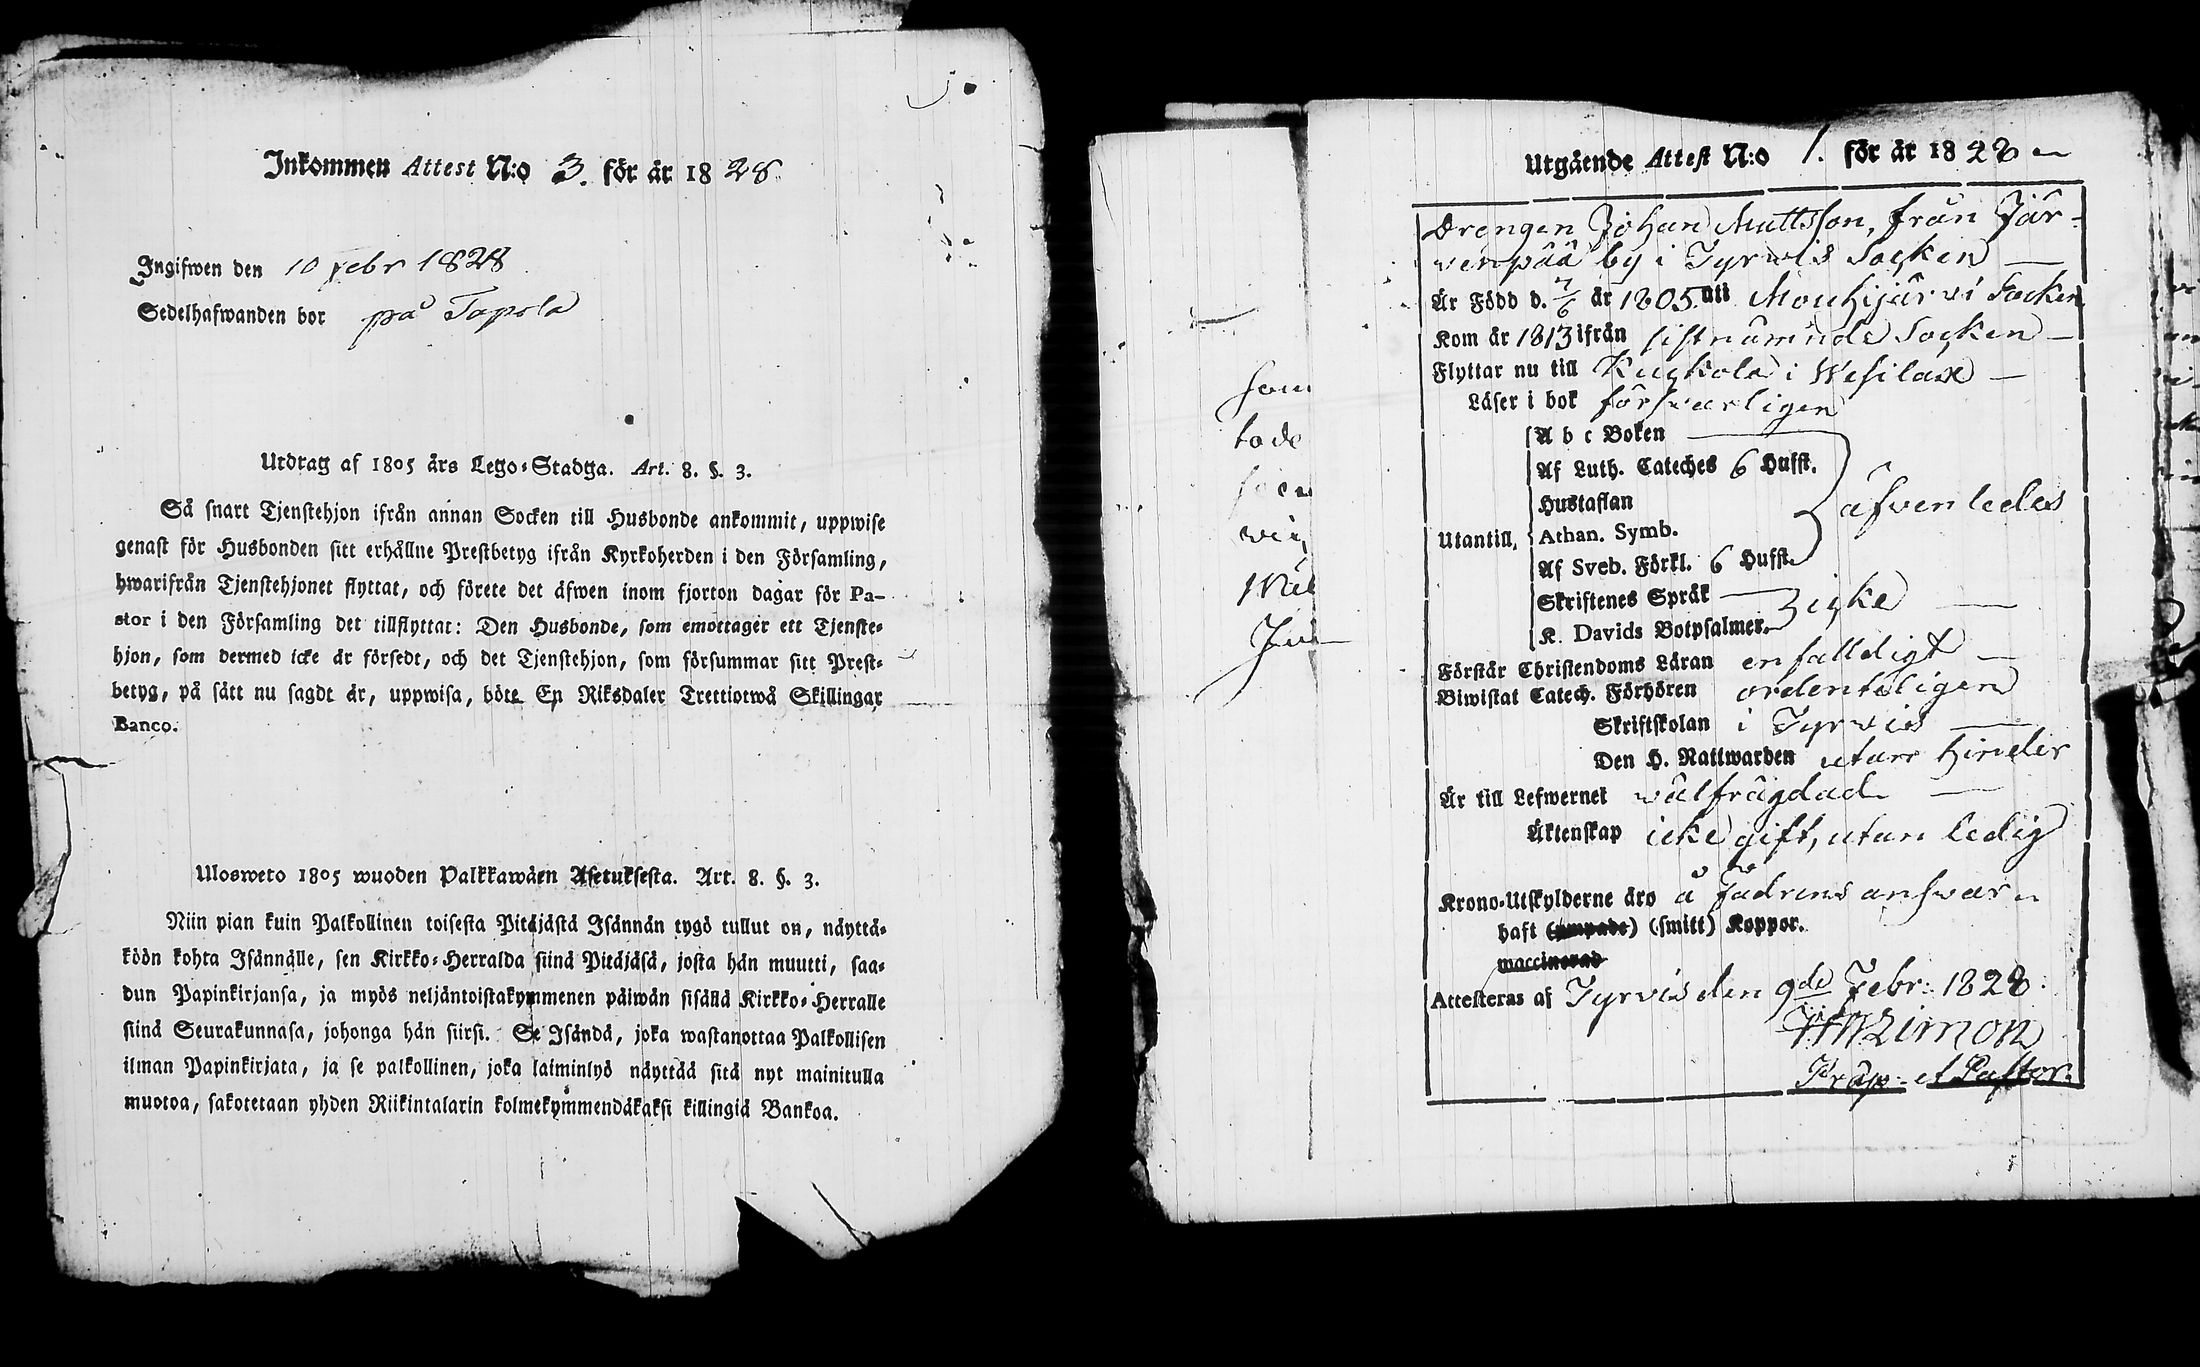 Inkommen Attest N:o 3. för år 1828.
Ingifwen den 10 Febr 1828
Sedelhafwanden bor på Tapola
Utdrag af 1805 års Lego-Stadga. Art. 8. §. 3.
Så snart Tjenstehjon ifrån annan Socken till Husbonde ankommit, uppwise
genast för Husbonden sitt erhållne Prestbetyg ifrån Kyrkoherden i den Församling,
hwarifrån Tjenstehjonet flyttat, och förete det äfwen inom fjorton dagar för Pa-
stor i den Församling det tillflyttat: Den Husbonde, som emottager ett Tjenste-
hjon, som dermed icke är försedt, och det Tjenstehjon, som försummar sitt Prest-
betyg, på sätt nu sagdt är, uppwisa, böte En Riksdaler Trettiotwå Skillingar
Banco.
Ulosweto 1805 wuoden Palkkawäen Asetuksesta. Art. 8. §. 3.
Niin pian kuin Palkollinen toisesta Pitäjästä Isännän tygö tullut on, näyttä-
köön kohta Isännälle, sen Kirkko-Herralda siinä Pitäjäsä, josta hän muutti, saa-
dun Papinkirjansa, ja myös neljäntoistakymmenen päiwän sisällä Kirkko-Herralle
siinä Seurakunnasa, johonga hän siirsi. Se Isändä, joka wastanottaa Palkollisen
ilman Papinkirjata, ja se palkollinen, joka laiminlyö näyttää sitä nyt mainitulla
muotoa, sakotetaan yhden Riikintalarin kolmekymmendäkaksi killingiä Bankoa.
som
tade
Jun
Utgående Attest N:o 1. för år 1828
Drengen Johan Mattsson, från Jär-
venpää by i Tyrvis Socken
Är Född d. 7/6 år 1805 uti Mouhijärvi Socken
Kom år 1813 ifrån sistnämnde Socken
Flyttar nu till Kuckola i Wesilax
Läser i bok försvarligen
A b c Boken
Af Luth. Cateches 6 Hufst.
Hustaflan
äfvenledes
Utantill, Athan. Symb.
Af Sveb. Förkl. 6 Hufst.
Skriftenes Språk
icke
K. Davids Botpsalmer.
Förstår Christendoms Läran enfalldigt
Biwistat Catech. Förhören ordenteligen
Skriftskolan i Tyrvis
Den H. Nattwarden utan hinder
Är till Lefwernet wälfrägdad
Äktenskap icke gift, utan ledig
Krono-Utskylderne äro å Fadrens answar
haft (ympade) (smitt) Koppor.
waccinerad
Attesteras af Tyrvis den 9de Febr: 1828.
Präp: et Pastor.